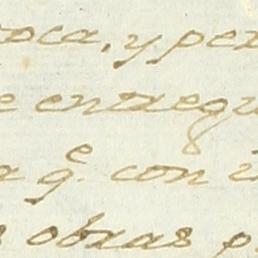 oca, y per
e entregu
a q.^e con
s obras p